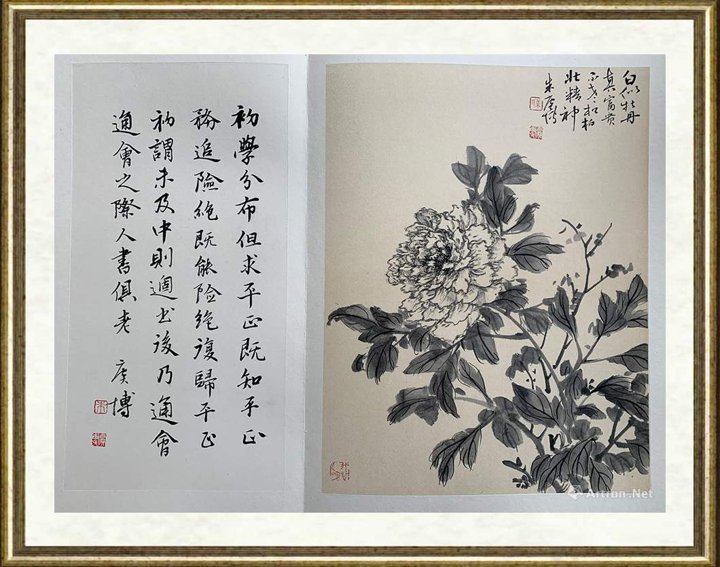 初學分布但求平正既知平正
務追險絕既能險絕復歸平正
初謂未及中則過之後乃通會
通會之際人書俱老 博
白似牡丹
真富貴
松柏
壯精神
朱
Artron.Net